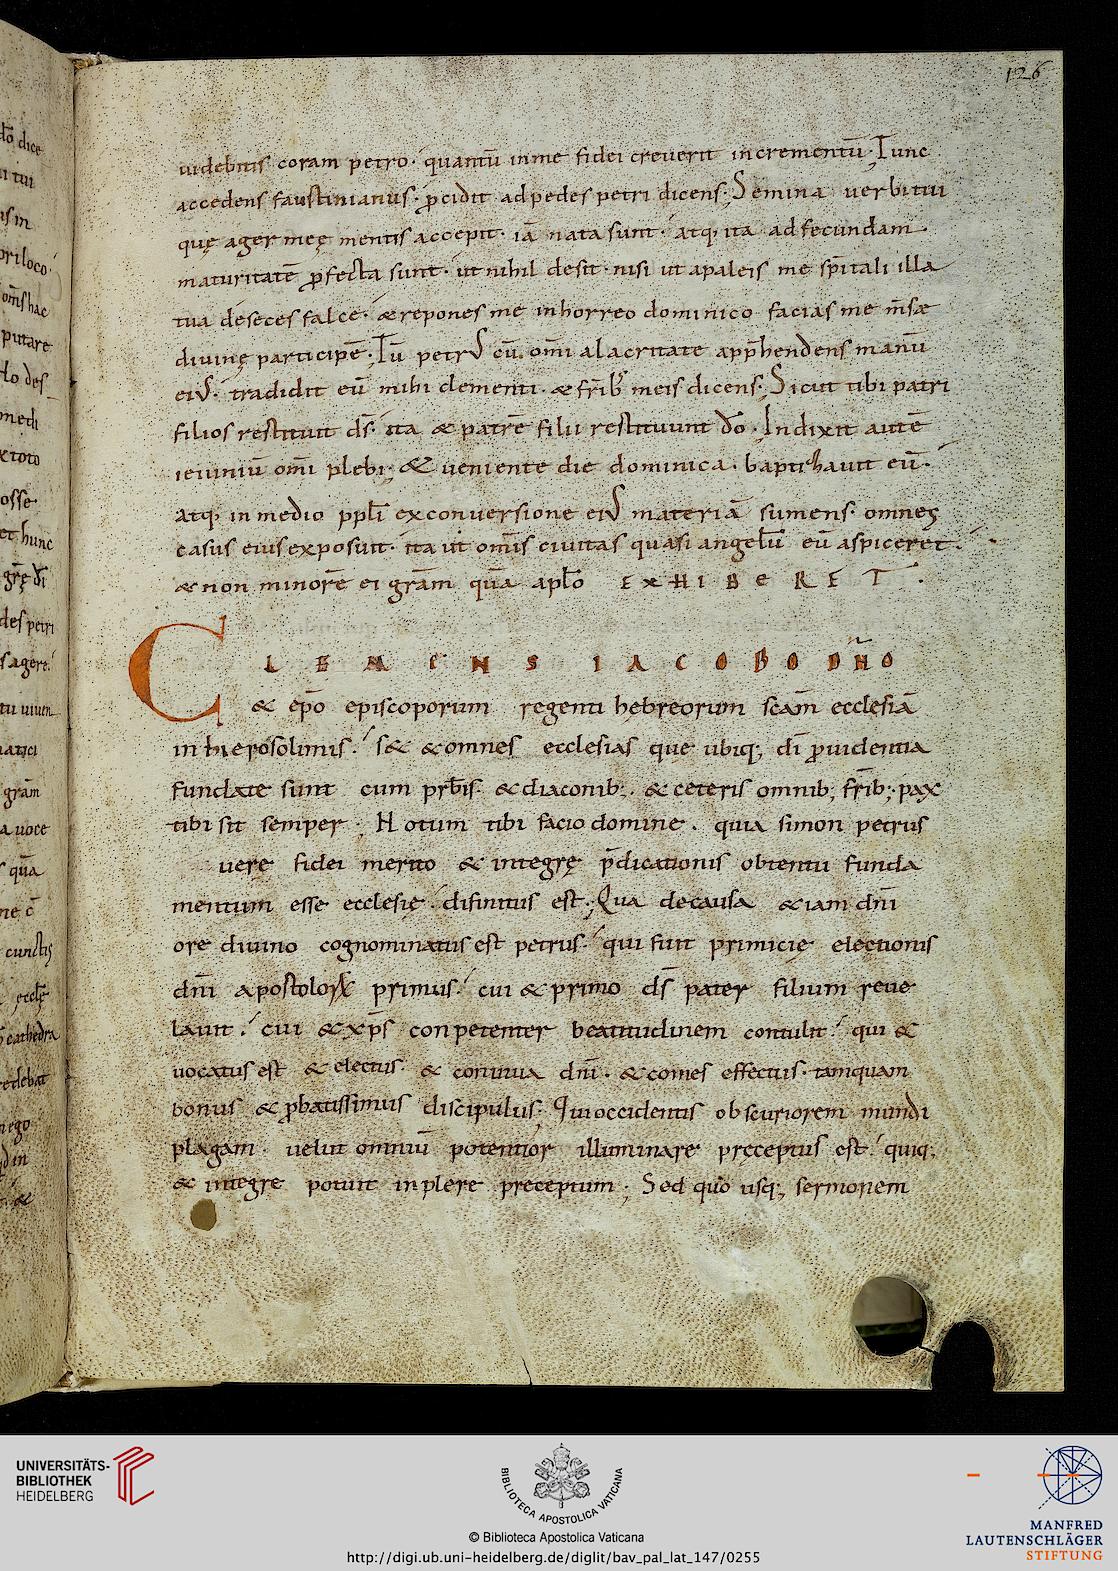 126
uidebitis coram petro· quantū inme fidei creuerit incrementū· Tunc
accedens faustinianus· ꝓcidit adpedes petri dicens; Semina uerbi tui
quę ager meę mentis accepit· iā nata sunt· atq; ita adfecundam
maturitatē ꝓfecta sunt· ut nihil desit· nisi ut apaleis me sp̄itali illa
tua deseces falce· & repones me inhorreo dominico facias me m̄sæ
diuinę participē· Tū petrus cū omī alacritate app̄hendens manū
eius· tradidit eū mihi clementi· & fr̄ib; meis dicens· Sicut tibi patri
filios restituit d̄s· ita & patrē filii restituunt dō· Indixit autē
ieiuniū omī plebi· & ueniente die dominica· baptizauit eū·
atq; in medio pp̄li exconuersione eius materiā sumens· omnes
casus eius exposuit· ita ut om̄is ciuitas quasi angelū eū aspiceret·
& non minorē ei gr̄am quā ap̄lo EXHIBERET·
CLEMENS IACOBO DÑO
& ep̄o episcoporum regenti hebreorum sc̄am ecclesiā
in hierosolimis· s& & omnes ecclesias que ubiq; dī ꝓuidentia
fundate sunt cum pr̄bis· & diaconib;· & ceteris omnib; fr̄ib;· pax
tibi sit semper· Notum tibi facio domine· quia simon petrus
uere fidei merito & integrę p̄dicationis obtentu funda
mentum esse ecclesię difinitus est; Qua decausa &iam dn̄i
ore diuino cognominatus est petrus· qui fuit primicię electionis
dn̄i apostoloꝝ primus· cui & primo d̄s pater filium reue
lauit· cui & xp̄s conpetenter beatitudinem contulit· qui &
uocatus est & electus· & conuiua dn̄i· & comes effectus· tamquam
bonus & ꝓbatissimus discipulus· Qui occidentis obscuriorem mundi
plagam· uelut omniū potentior illuminare pręceptus est· quiq;
& integre potuit inplere pręceptum; Sed quo usq; sermonem
UNIVERSITÄTS-
BIBLIOTHEK
HEIDELBERG
BIBLIOTECA APOSTOLICA VATICANA
© Biblioteca Apostolica Vaticana
http://digi.ub.uni-heidelberg.de/diglit/bav_pal_lat_147/0255
MANFRED
LAUTENSCHLÄGER
STIFTUNG